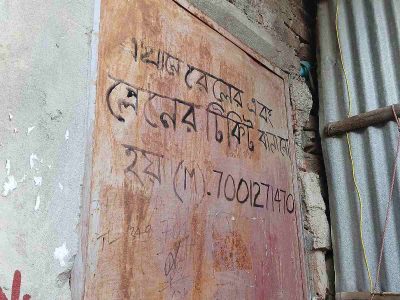 এখানে রেলের এবং
প্লেনের টিকিট বানানো
হয় (M). 7001271470